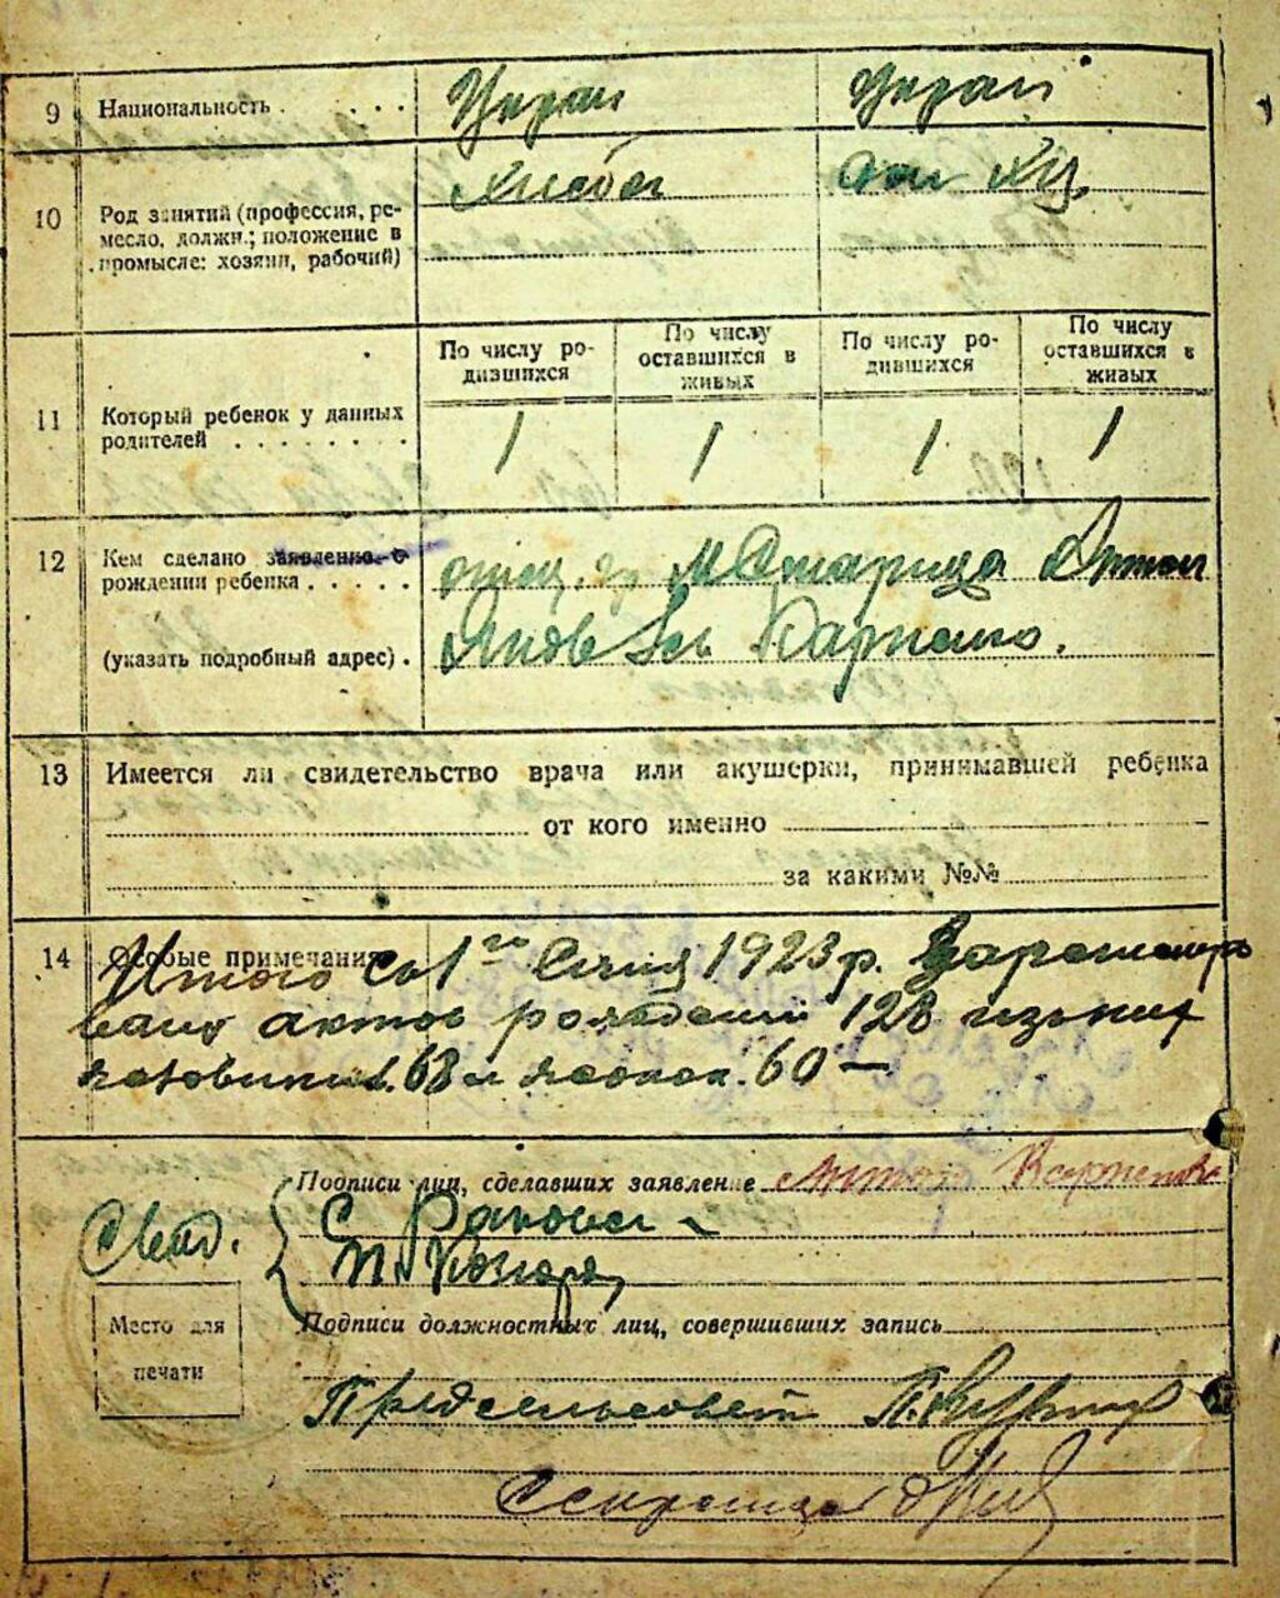 9 Национальность . . . . . Украи Украй
10 Род занятий (профессия, ре-
месло, должн.; положение в
промысле: хозяин, рабочий)
Хлебо дом хоз
11 Который ребенок у данных
родителей . . . . . . . .
По числу ро-
дившихся
По числу
оставшихся в
живых
По числу ро-
дившихся
По числу
оставшихся в
живых
1 1 1 1
12 Кем сделано заявление о
рождении ребенка . . . . .
отец, М Старица Антон
(указать подробный адрес) .
Яковлев Карпенко.
13 Имеется ли свидетельство врача или акушерки, принимавшей ребенка
от кого именно
за какими №№
14 Особые примечания
Итого со 1го Січня 1923 р. Зарегистри
вано актов рождений 128 из них
68 и 60 —
Подписи лиц, сделавших заявление Антон Карпенко
Свид.
С Раковец
П. Козир
Место для
печати
Подписи должностных лиц, совершивших запись
Предсельсовет П.
Секретарь